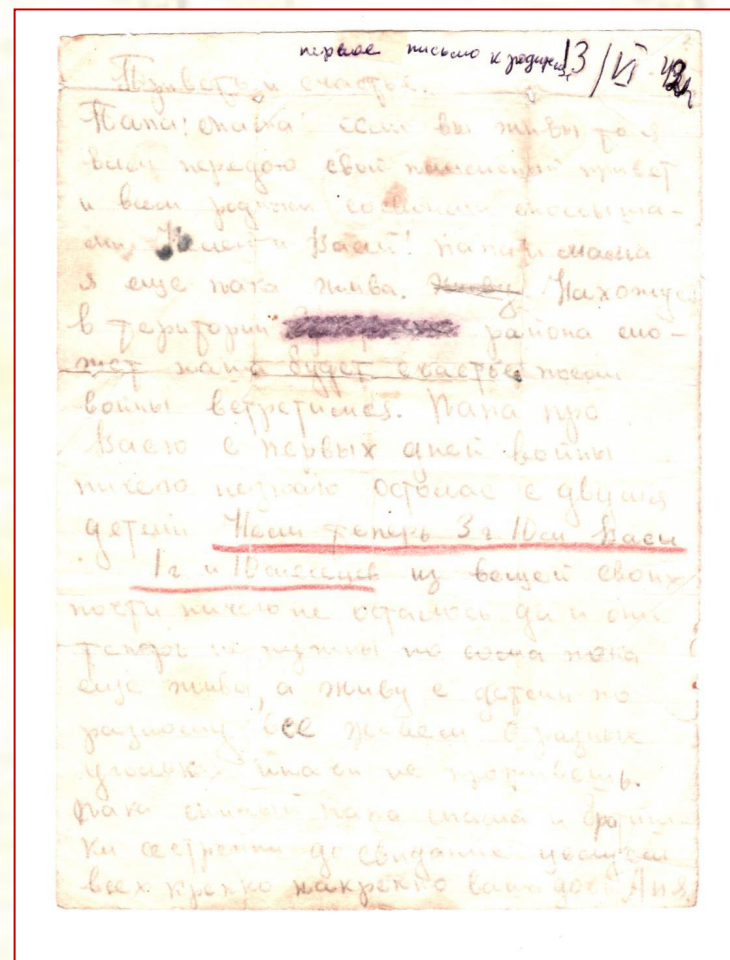 первое письмо к родным 13/VI 42г
Привет и счастье.
Папа! мама! если вы живы то я
вам передаю свой пламенный привет
и всем родным
и Васи! папа и мама
я еще пока жива. Нахожусь
в територии района мо-
жет папа будет счастье после
войны встретимся. Папа про
Васю с первых дней войны
ничего незнаю осталас с двумя
детьми теперь 3 г 10 м Васи
1 г и 10 месяцев из вещей своих
почти ничего не осталось да и они
теперь не нужны но сама пока
еще жива, а живу с детьми по
разному все живем в разных
уголках иначе не проживешь.
пока папа мама и братиш-
ки сестренки до свидания целую
всех крепко накрепко ваша дочь Аня